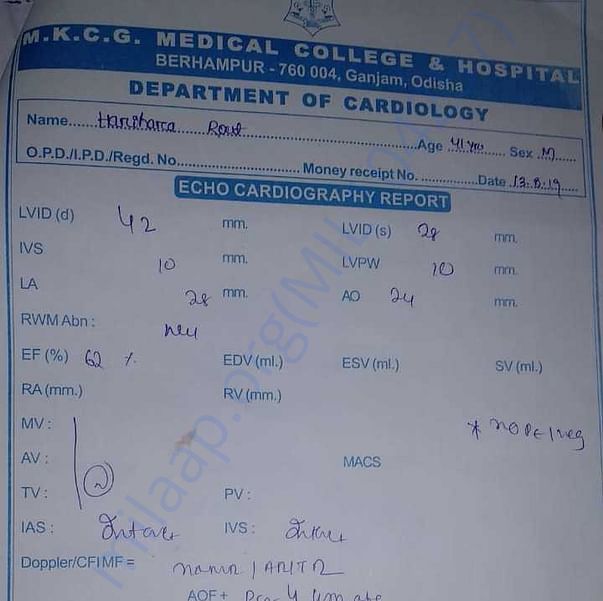 M.K.C.G. MEDICAL COLLEGE & HOSPITAL
BERHAMPUR - 760 004, Ganjam, Odisha
DEPARTMENT OF CARDIOLOGY
Name Age 41 yrs Sex M
O.P.D./I.P.D./Regd. No. Money receipt No. Date 13.8.19
ECHO CARDIOGRAPHY REPORT
LVID (d) 42 mm. LVID (s) 28 mm.
IVS 10 mm. LVPW 10 mm.
LA 28 mm. AO 24 mm.
RWM Abn :
EF (%) 62 % EDV (ml.) ESV (ml.) SV (ml.)
RA (mm.) RV (mm.)
MV : * NO PE / veg
AV : MACS
TV : PV :
IAS : Intact IVS : Intact
Doppler/CFI MF =
AOF +
milaap.org(MIL